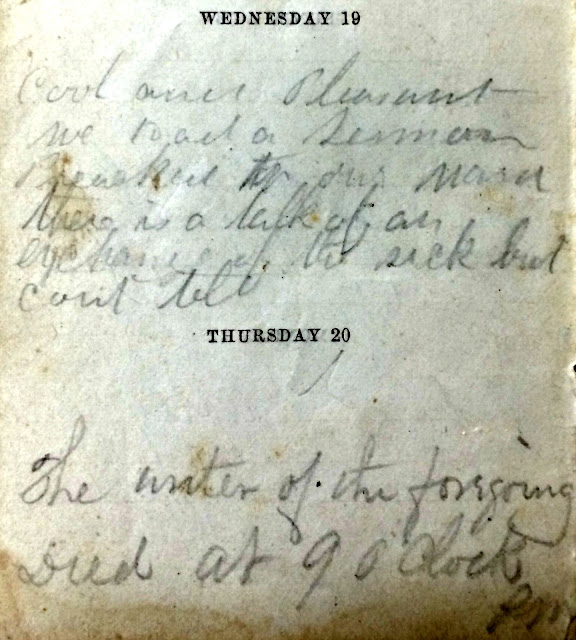 WEDNESDAY 19
Cool and Pleasant
we had a Sermon
Preached in our ward
there is a talk of an
exchange of the sick but
cant tell
THURSDAY 20
The writer of the foregoing
Died at 9 O'Clock
P.m